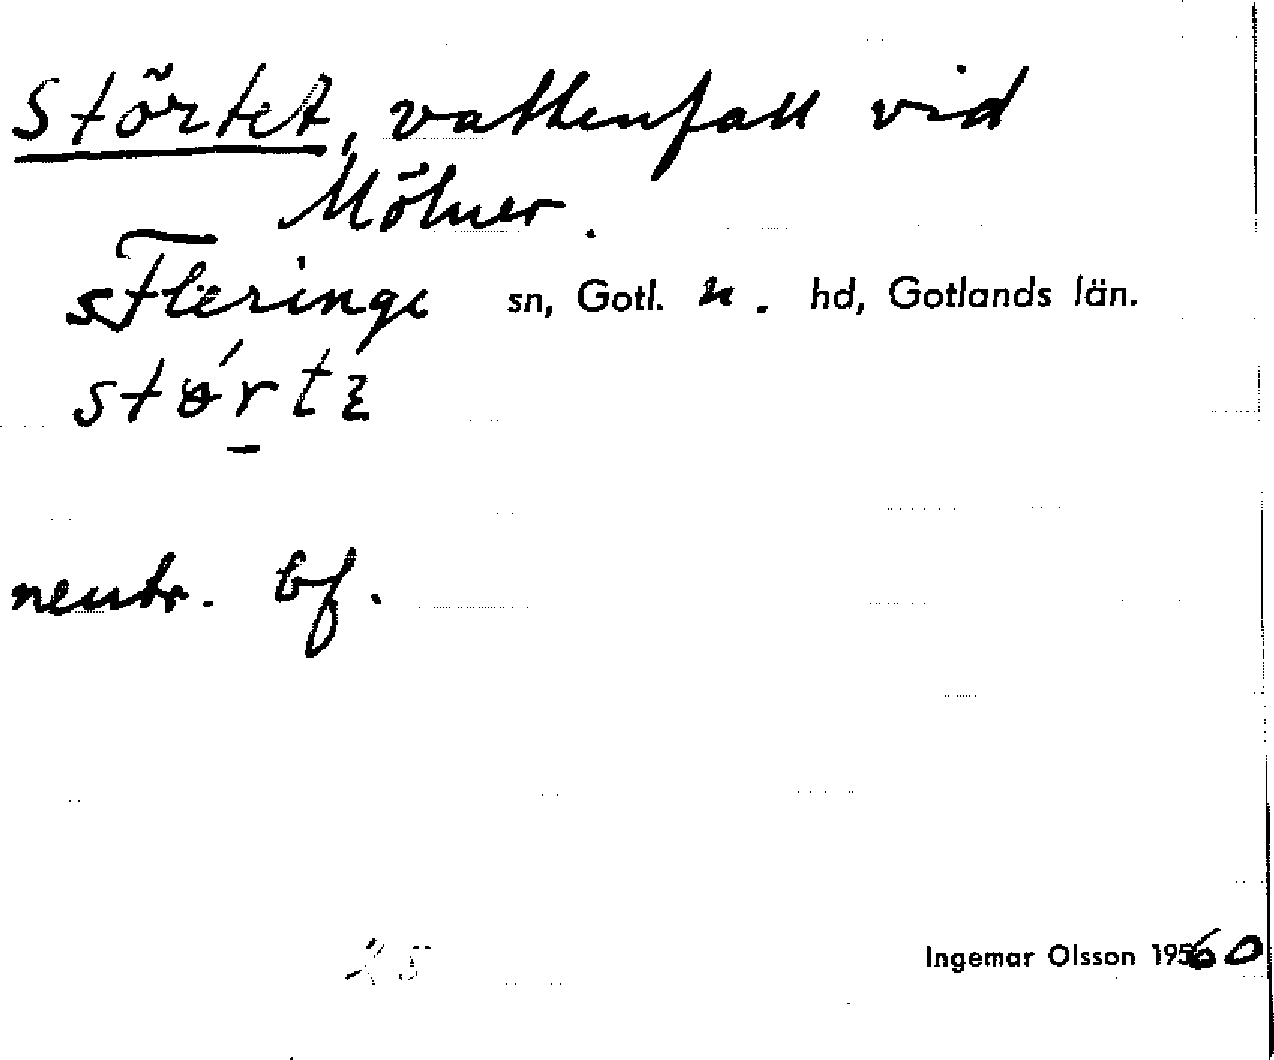 Störtet, vattenfall vid
Mölner.
Fleringe sn, Gotl. n. hd, Gotlands län.
neutr. bf.
25
Ingemar Olsson 1960